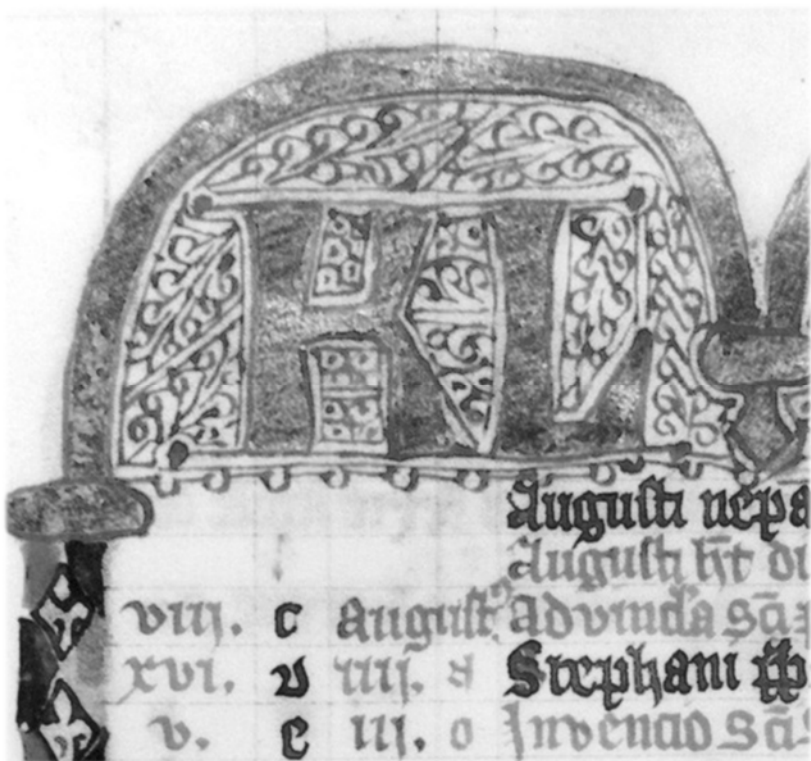 KL
Augusti nepa
Augusti ht di
viii. c August9 Ad vincla sci
xvi. d iiii. n Stephani pp
v. e iii. o Invencio sci